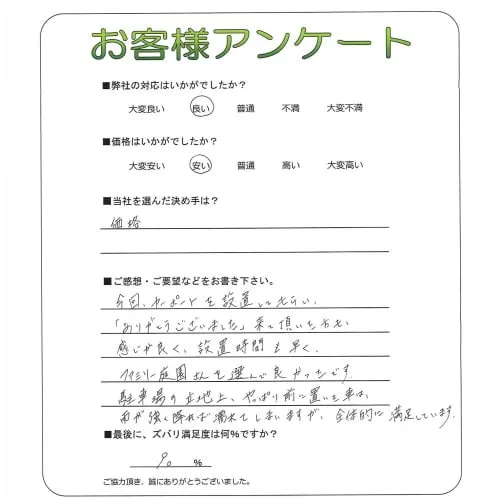 お客様アンケート
■弊社の対応はいかがでしたか？
大変良い 良い 普通 不満 大変不満
■価格はいかがでしたか？
大変安い 安い 普通 高い 大変高い
■当社を選んだ決め手は？
価格
■ご感想・ご要望などをお書き下さい。
今回、カーポートを設置してもらい、
「ありがとうございました」来て頂いた方も
感じが良く、設置時間も早く、
ファミリー庭園さんを選んで良かったです。
駐車場の立地上、やっぱり前に置いた車は、
雨が強く降れば濡れてしまいますが、全体的に満足しています。
■最後に、ズバリ満足度は何%ですか？
90 %
ご協力頂き、誠にありがとうございました。